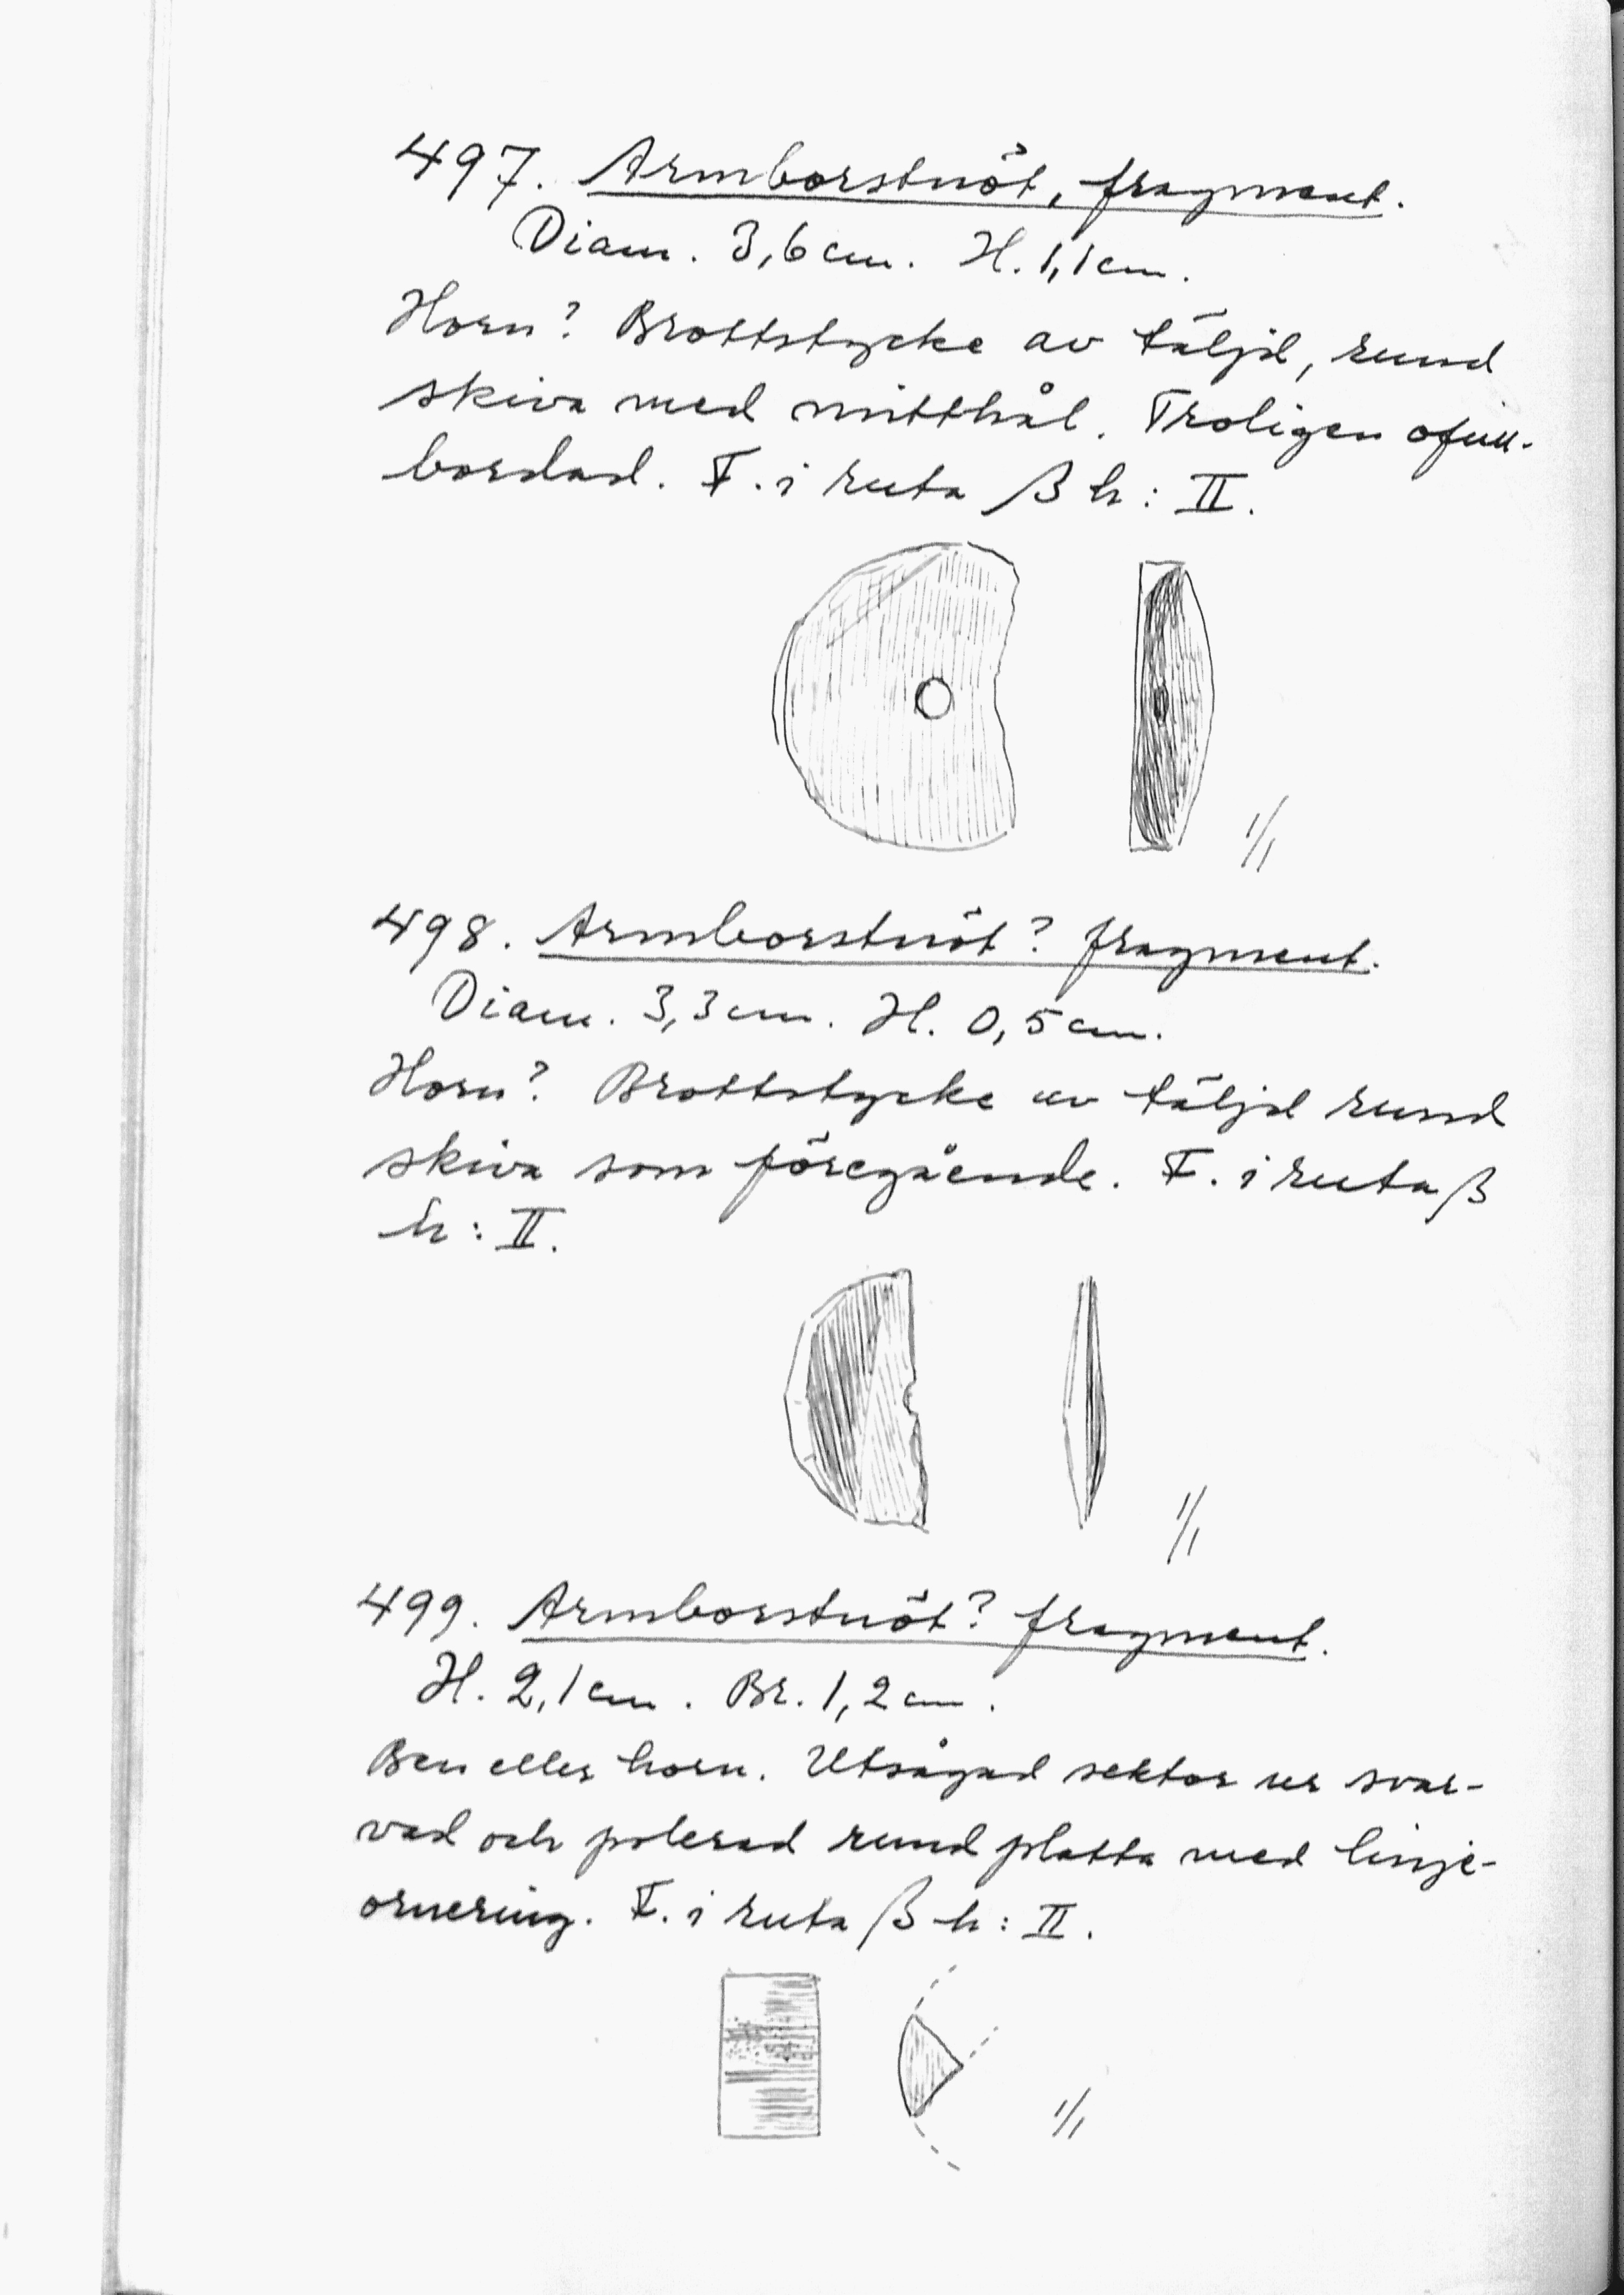 497. Armborstnöt, fragment.
Diam. 3,6 cm. H. 1,1 cm.
Horn? Brottstycke av täljd, rund
skiva med mitthål. Troligen ofull-
bordad. F. i ruta β h : II.
1/1
498. Armborstnöt? fragment.
Diam. 3,3 cm. H. 0,5 cm.
Horn? Brottstycke av täljd rund
skiva som föregående. F. i ruta β
h : II.
1/1
499. Armborstnöt? fragment.
H. 2,1 cm. Br. 1,2 cm.
Ben eller horn. Utsågad sektor ur svar-
vad och polerad rund platta med linje-
ornering. F. i ruta β h : II.
1/1